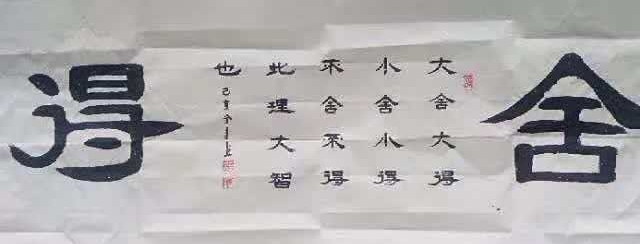 舍
大舍大得
小舍小得
不舍不得
此理大智
也
己亥
得